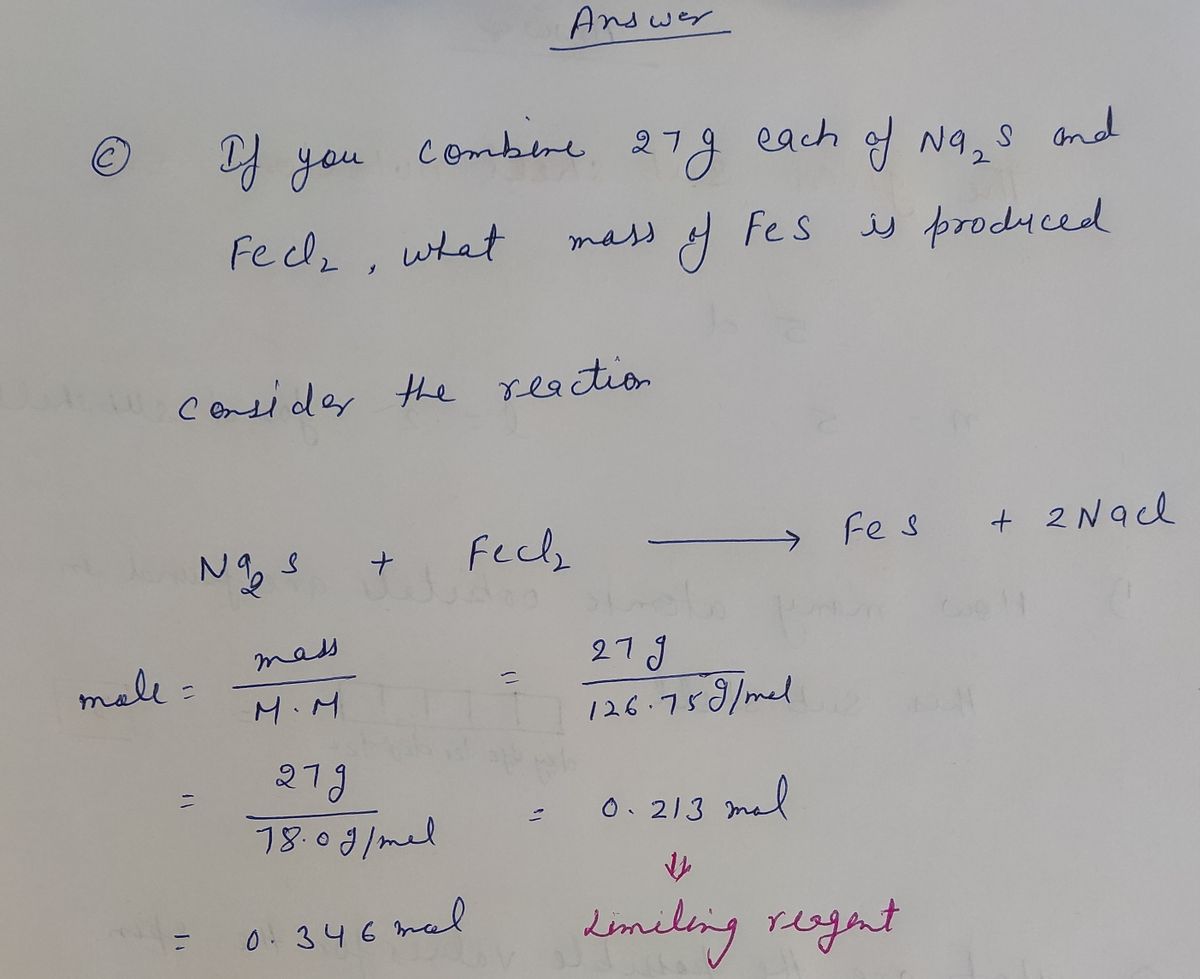 Answer
© If you combine 27g each of Na₂S and
FeCl₂, what mass of FeS is produced
Consider the reaction
Na₂S + FeCl₂ ⟶ FeS + 2NaCl
mole = mass / M.M = 27g / 126.75 g/mol
= 27g / 78.0 g/mol = 0.213 mol
⇓
= 0.346 mol Limiting reagent